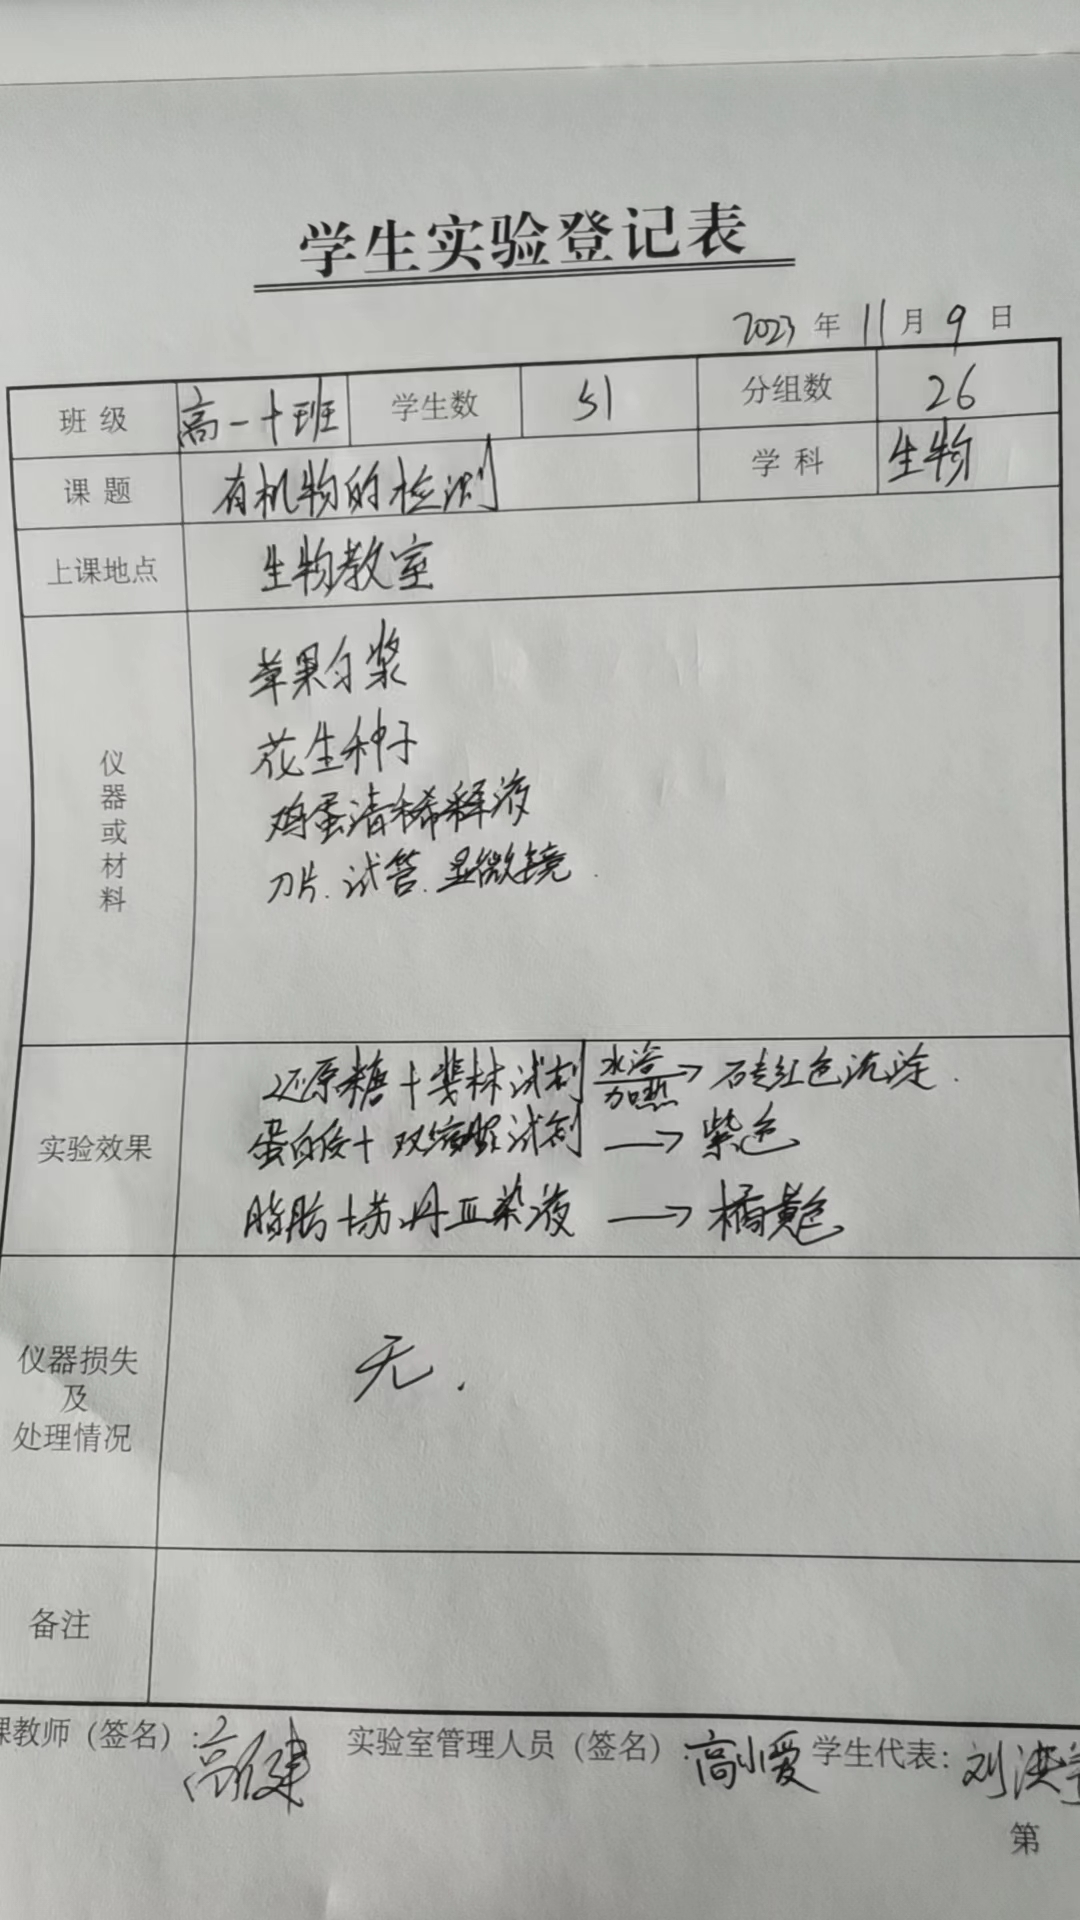 学生实验登记表
2023 年 11 月 9 日
班级 高一十班 学生数 51 分组数 26
课题 有机物的检测 学科 生物
上课地点 生物教室
仪器或材料
苹果匀浆
花生种子
鸡蛋清稀释液
刀片.试管.显微镜.
实验效果
还原糖+斐林试剂 水浴加热→ 砖红色沉淀.
蛋白质+双缩脲试剂 → 紫色
脂肪+苏丹Ⅲ染液 → 橘黄色
仪器损失
及
处理情况
无.
备注
课教师（签名）: 实验室管理人员（签名）:高小爱 学生代表:刘洪
第